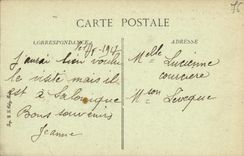 CARTE POSTALE
CORRESPONDANCE
ADRESSE
J'aurai bien voulu
le visite mais il
est à Salonique
Bons souvenirs
Jeanne
Melle Lucienne
couturière
Mson Leveque